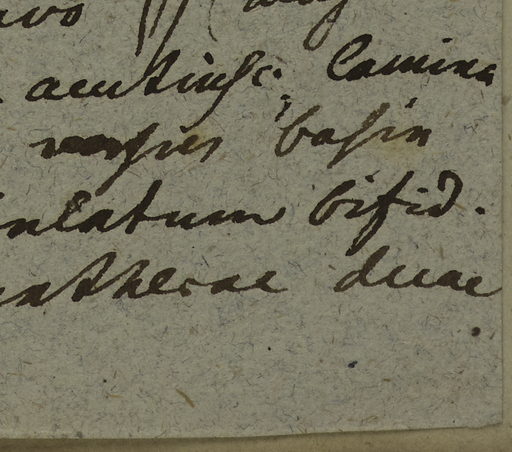 acutiusc: lamina
versus basin
latum bifid.
antherae duae